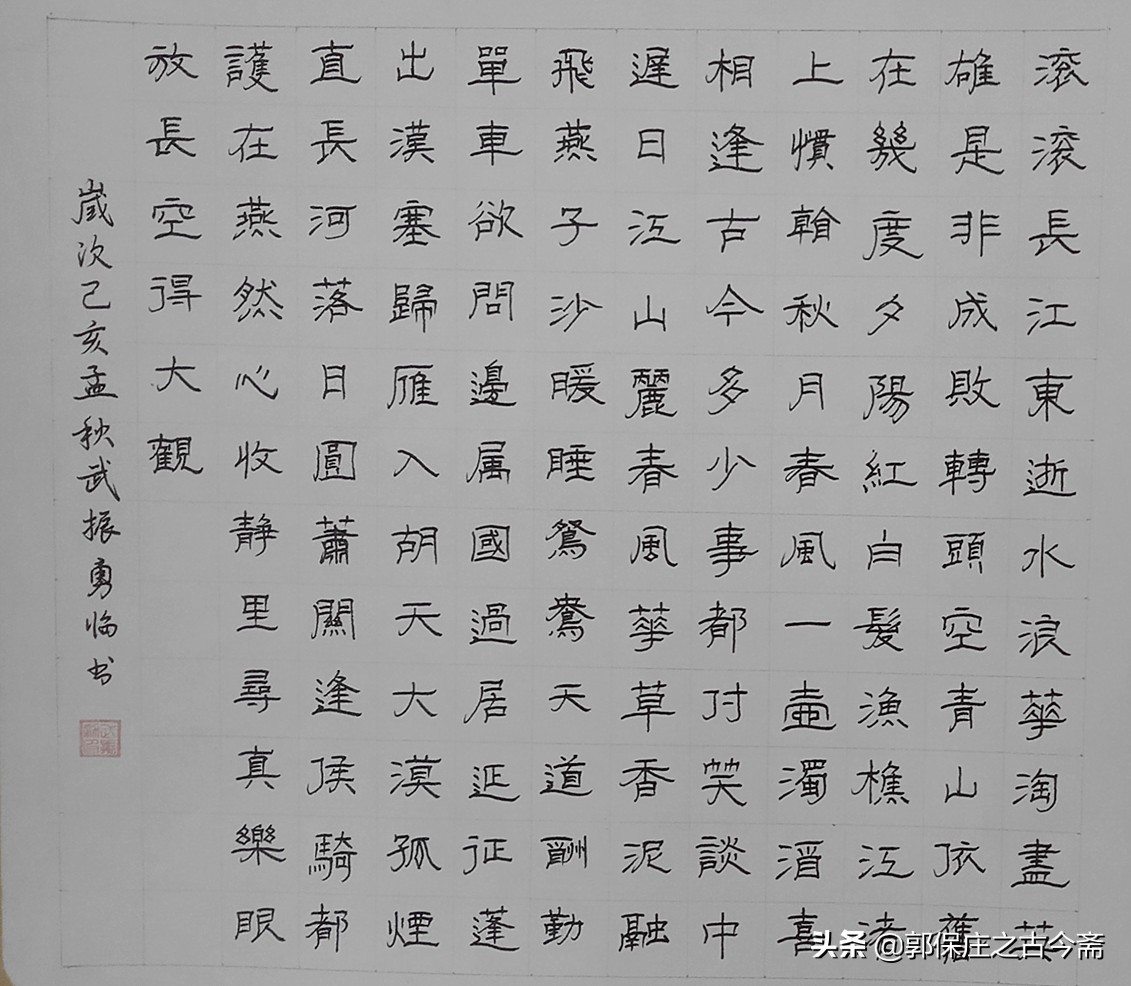 滚滚長江東逝水浪華淘盡英
雄是非成敗轉頭空青山依舊
在幾度夕陽紅白髮漁樵江渚
上慣看秋月春風一壺濁酒喜
相逢古今多少事都付笑談中
遲日江山麗春風華草香泥融
飛燕子沙暖睡鴛鴦天道酬勤
單車欲問邊属國過居延征蓬
出漢塞歸雁入胡天大漠孤煙
直長河落日圓蕭關逢侯騎都
護在燕然心收静里尋真樂眼
放長空得大觀
歲次己亥孟秋武振勇临书
头条 @郭保庄之古今斋